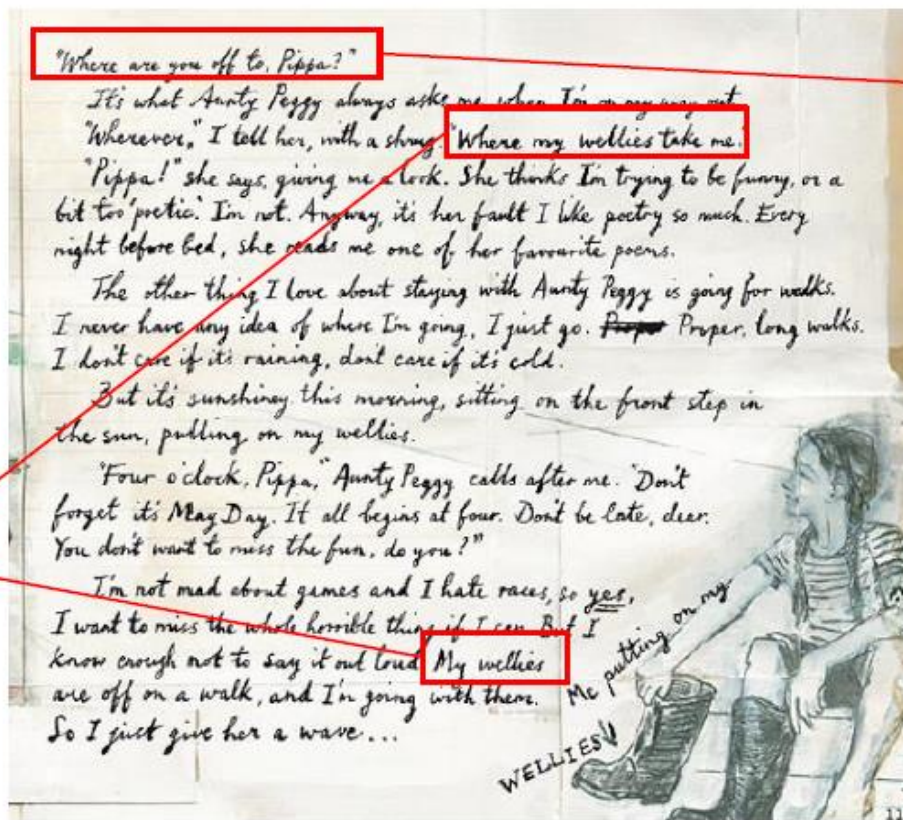 "Where are you off to, Pippa?"
It's what Aunty Peggy always asks me when I'm on my way out.
"Wherever," I tell her, with a shrug. "Where my wellies take me."
"Pippa!" she says, giving me a look. She thinks I'm trying to be funny, or a
bit too 'poetic'. I'm not. Anyway, it's her fault I like poetry so much. Every
night before bed, she reads me one of her favourite poems.
The other thing I love about staying with Aunty Peggy is going for walks.
I never have any idea of where I'm going, I just go. Proper, long walks.
I don't care if it's raining, don't care if it's cold.
But it's sunshiney this morning, sitting on the front step in
the sun, pulling on my wellies.
"Four o'clock, Pippa," Aunty Peggy calls after me. "Don't
forget it's May Day. It all begins at four. Don't be late, dear.
You don't want to miss the fun, do you?"
I'm not mad about games and I hate races, so yes,
I want to miss the whole horrible thing if I can. But I
know enough not to say it out loud. My wellies
are off on a walk, and I'm going with them.
So I just give her a wave...
Me putting on my
WELLIES!
11